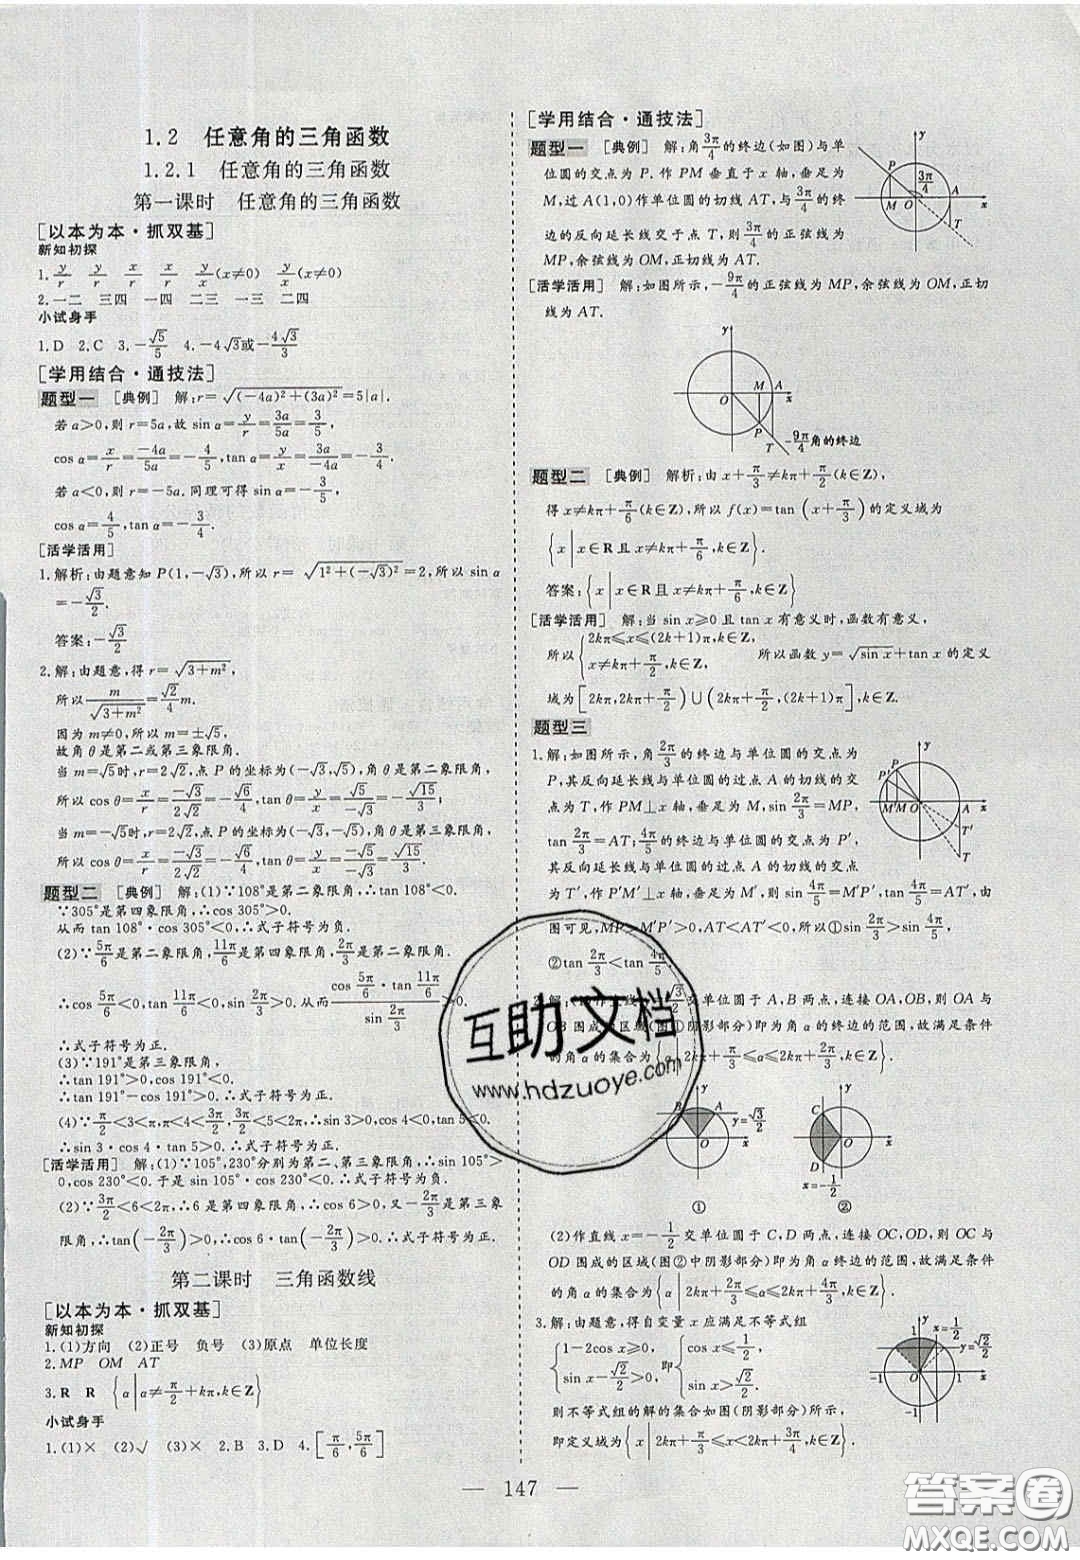 1.2 任意角的三角函数
1.2.1 任意角的三角函数
第一课时 任意角的三角函数
[以本为本·抓双基]
新知初探
1. y/r y/r x/r x/r y/x(x≠0) y/x(x≠0)
2.一二 三四 一四 二三 一三 二四
小试身手
1.D 2.C 3.-√5/5 4.-4√3或-4√3/3
[学用结合·通技法]
题型一 [典例] 解:r=√((-4a)²+(3a)²)=5|a|.
若a>0,则r=5a,故sin α=y/r=3a/5a=3/5,
cos α=x/r=-4a/5a=-4/5,tan α=-3/4.
若a<0,则r=-5a.同理可得sin α=-3/5,
cos α=4/5,tan α=-3/4.
[活学活用]
1.解析:由题意知P(1,-√3),所以r=√(1²+(-√3)²)=2,所以sin α
=-√3/2.
答案:-√3/2
2.解:由题意,得r=√(3+m²),
所以m/√(3+m²)=√2/4 m.
因为m≠0,所以m=±√5,
故角θ是第二或第三象限角.
当m=√5时,r=2√2,点P的坐标为(-√3,√5),角θ是第二象限角,
所以cos θ=x/r=-√3/2√2=-√6/4,tan θ=y/x=√5/-√3=-√15/3.
当m=-√5时,r=2√2,点P的坐标为(-√3,-√5),角θ是第三象限角,
所以cos θ=x/r=-√3/2√2=-√6/4,tan θ=y/x=-√5/-√3=√15/3.
题型二 [典例] 解:(1)∵108°是第二象限角,∴tan 108°<0.
∵305°是第四象限角,∴cos 305°>0.
从而tan 108°·cos 305°<0,∴式子符号为负.
(2)∵5π/6是第二象限角,11π/6是第四象限角,2π/3是第二象限角,
∴cos 5π/6<0,tan 11π/6<0,sin 2π/3>0.从而 cos 5π/6·tan 11π/6 / sin 2π/3>0.
∴式子符号为正.
(3)∵191°是第三象限角,
∴tan 191°>0,cos 191°<0.
∴tan 191°-cos 191°>0.∴式子符号为正.
(4)∵π/2<3<π,π<4<3π/2,3π/2<5<2π,∴sin 3>0,cos 4<0,tan 5<0,
∴sin 3·cos 4·tan 5>0.∴式子符号为正.
[活学活用] 解:(1)∵105°,230°分别为第二、第三象限角,∴sin 105°>
0,cos 230°<0.于是sin 105°·cos 230°<0.∴式子符号为负.
(2)∵3π/2<6<2π,∴6是第四象限角,∴cos 6>0,又-2π/3是第三象
限角,∴tan(-2π/3)>0,∴cos 6·tan(-2π/3)>0.∴式子符号为正.
第二课时 三角函数线
[以本为本·抓双基]
新知初探
1.(1)方向 (2)正号 负号 (3)原点 单位长度
2.MP OM AT
3.R R {α|α≠π/2+kπ,k∈Z}
小试身手
1.(1)× (2)√ (3)× 2.B 3.D 4.[π/6,5π/6]
[学用结合·通技法]
题型一 [典例] 解:角3π/4的终边(如图)与单
位圆的交点为P.作PM垂直于x轴,垂足为
M,过A(1,0)作单位圆的切线AT,与3π/4的终
边的反向延长线交于点T,则3π/4的正弦线为
MP,余弦线为OM,正切线为AT.
y 3π/4 P A M O x T
[活学活用] 解:如图所示,-9π/4的正弦线为MP,余弦线为OM,正切
线为AT.
y M A O x P T
-9π/4角的终边
题型二 [典例] 解析:由x+π/3≠kπ+π/2(k∈Z),
得x≠kπ+π/6(k∈Z),所以f(x)=tan(x+π/3)的定义域为
{x|x∈R且x≠kπ+π/6,k∈Z}.
答案:{x|x∈R且x≠kπ+π/6,k∈Z}
[活学活用] 解:当sin x≥0且tan x有意义时,函数有意义,
所以{2kπ≤x≤(2k+1)π,
x≠kπ+π/2, 所以函数y=√sin x+tan x的定义
域为[2kπ,2kπ+π/2)∪(2kπ+π/2,(2k+1)π](k∈Z).
题型三
1.解:如图所示,角2π/3的终边与单位圆的交点为
P,其反向延长线与单位圆的过点A的切线的交
点为T,作PM⊥x轴,垂足为M,sin 2π/3=MP,
tan 2π/3=AT;4π/5的终边与单位圆的交点为P′,
其反向延长线与单位圆的过点A的切线的交点
为T′,作P′M′⊥x轴,垂足为M′,则sin 4π/5=M′P′,tan 4π/5=AT′,由
图可见,MP>M′P′>0,AT<AT′<0,所以①sin 2π/3>sin 4π/5,
②tan 2π/3<tan 4π/5.
y P P′ M′ M O A x T′ T
2.解:(1)作直线y=√3/2交单位圆于A,B两点,连接OA,OB,则OA与
OB围成的区域(图①阴影部分)即为角α的终边的范围,故满足条件
的角α的集合为{α|2kπ+π/3≤α≤2kπ+2π/3,k∈Z}.
y B A y=√3/2 O x ①
y C O x D x=-1/2 ②
(2)作直线x=-1/2交单位圆于C,D两点,连接OC,OD,则OC与
OD围成的区域(图②中阴影部分)即为角α终边的范围,故满足条件
的角α的集合为{α|2kπ+2π/3≤α≤2kπ+4π/3,k∈Z}.
3.解:由题意,得自变量x应满足不等式组
{1-2cos x≥0, sin x-√2/2>0, 即{cos x≤1/2, sin x>√2/2.
则不等式组的解的集合如图(阴影部分)所示,
即定义域为{x|2kπ+π/3≤x<2kπ+3π/4,k∈Z}.
y x=1/2 y=√2/2 -1 O 1 x -1
— 147 —
互助文档
www.hdzuoye.com
答案圈
MXQE.COM